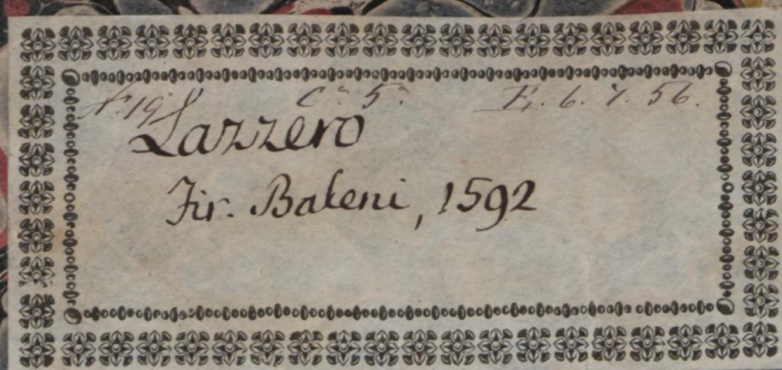 N. 19. C. 5. E. 6. 7. 56.
Lazzero
Fir. Baleni, 1592